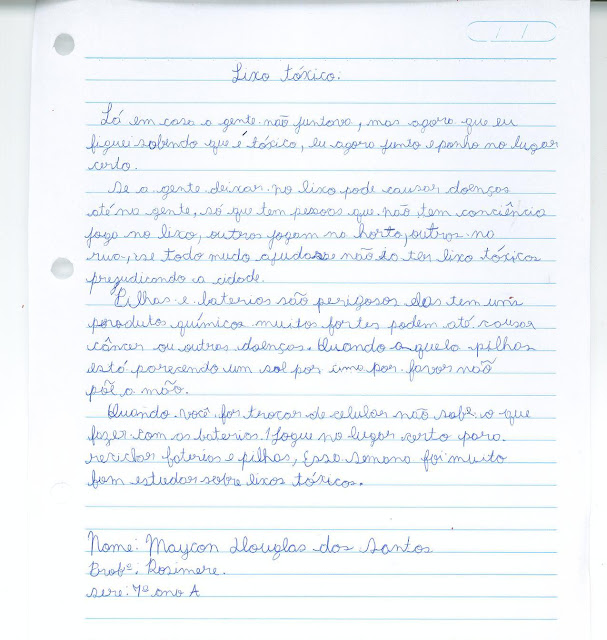 Lixo tóxico.
Lá em casa a gente não juntava, mas agora que eu
fiquei sabendo que é tóxico, eu agora junto e ponho no lugar
certo.
Se a gente deixar no lixo pode causar doenças
até na gente, só que tem pessoas que não tem conciência
joga no lixo, outros jogam na horta, outros na
rua, se todo mudo ajudasse não ia ter lixo tóxicos
prejudicando a cidade.
Pilhas e baterias são perigosos elas tem uns
porodutos químicos muitos fortes podem até causar
câncer ou outras doenças. Quando aquela pilhas
está parecendo um sol por cima por favor não
põe a mão.
Quando você for trocar de celular não sabe o que
fazer com as baterias! Jogue no lugar certo para
reciclar baterias e pilhas, Essa semana foi muito
bom estudar sobre lixos tóxicos.
Nome: Maycon Douglas dos Santos
Profª. Rosimere.
serie: 7º ano A